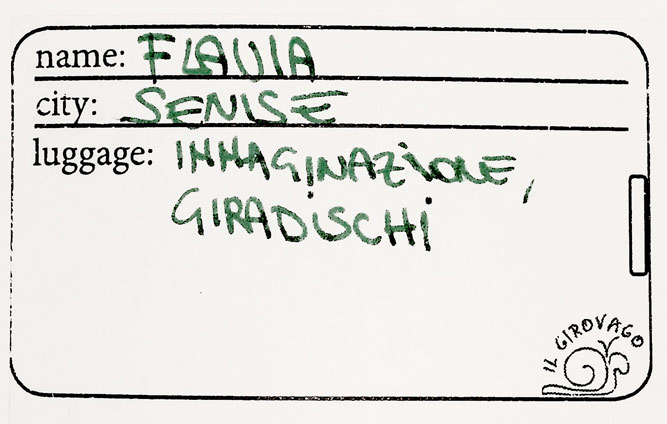 name: FLAVIA
city: SENISE
luggage: IMMAGINAZIONE,
GIRADISCHI
IL GIROVAGO